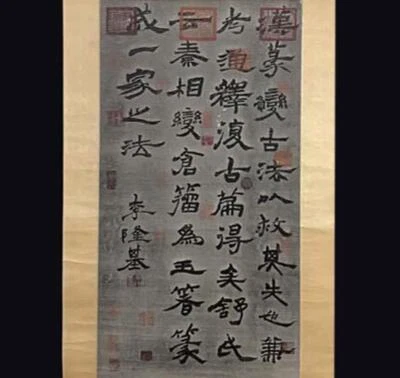 漢篆變古法以救其失也兼
考通釋復古篇得矣舒氏
云秦相變倉籀為玉箸篆
成一家之法
李隆基